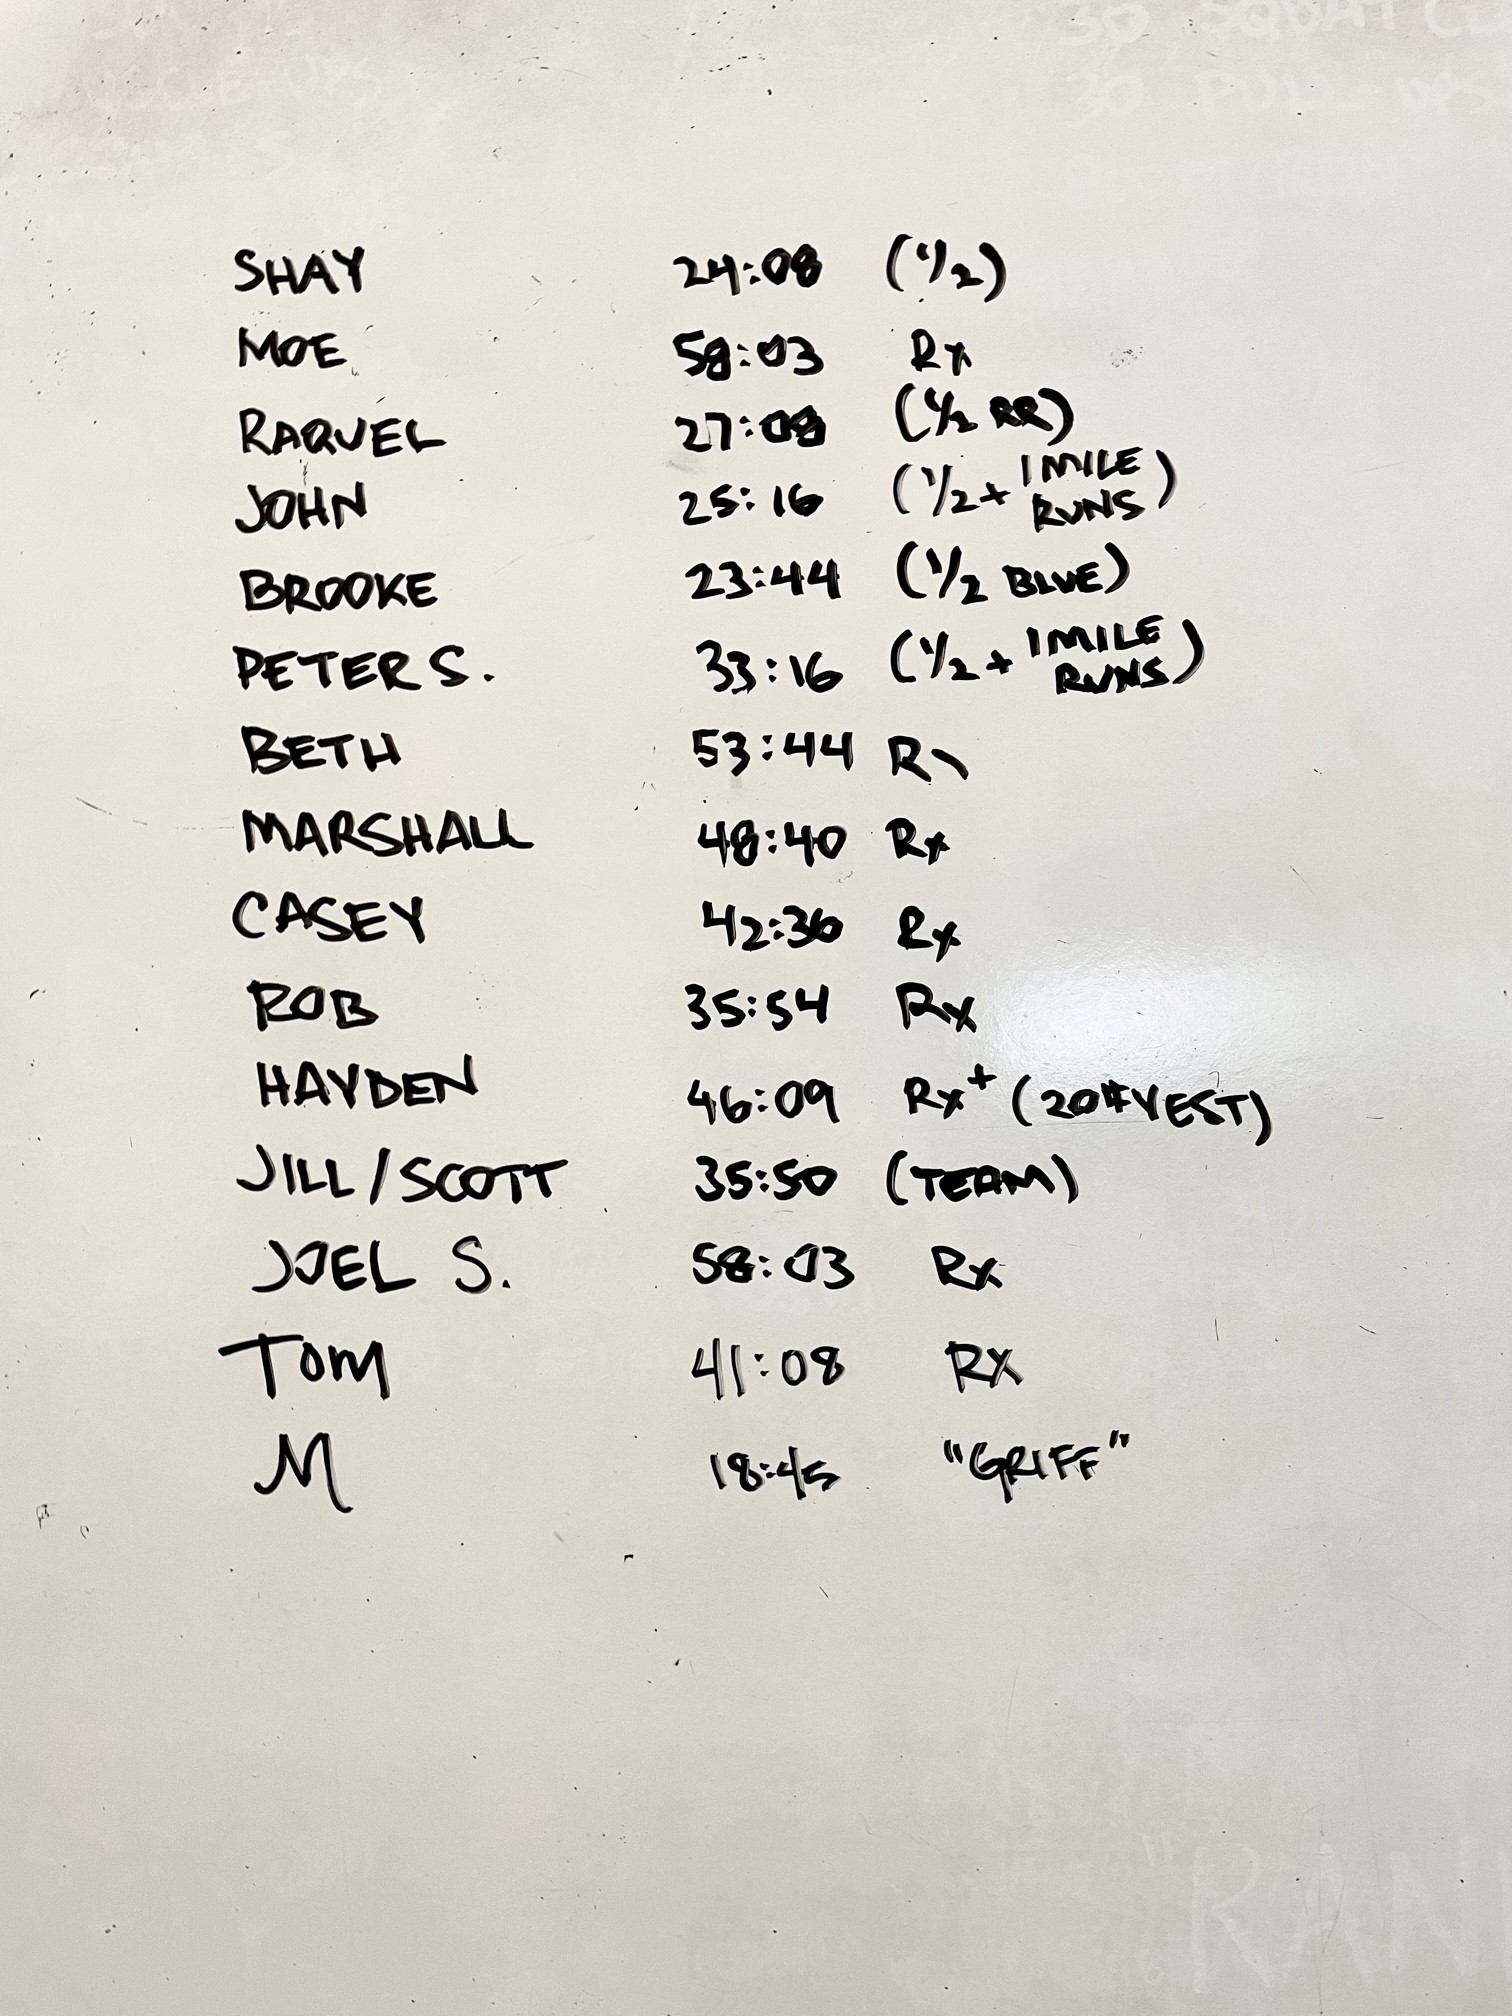 30 SQUAT
30 PULL-UPS
SHAY 24:08 (1/2)
MOE 58:03 Rx
RAQUEL 27:08 (1/2 RR)
JOHN 25:16 (1/2 + 1 MILE RUNS)
BROOKE 23:44 (1/2 BLUE)
PETER S. 33:16 (1/2 + 1 MILE RUNS)
BETH 53:44 R
MARSHALL 48:40 Rx
CASEY 42:36 Rx
ROB 35:54 Rx
HAYDEN 46:09 Rx+ (20# VEST)
JILL/SCOTT 35:50 (TEAM)
JOEL S. 58:03 Rx
TOM 41:08 RX
M 18:45 "GRIFF"